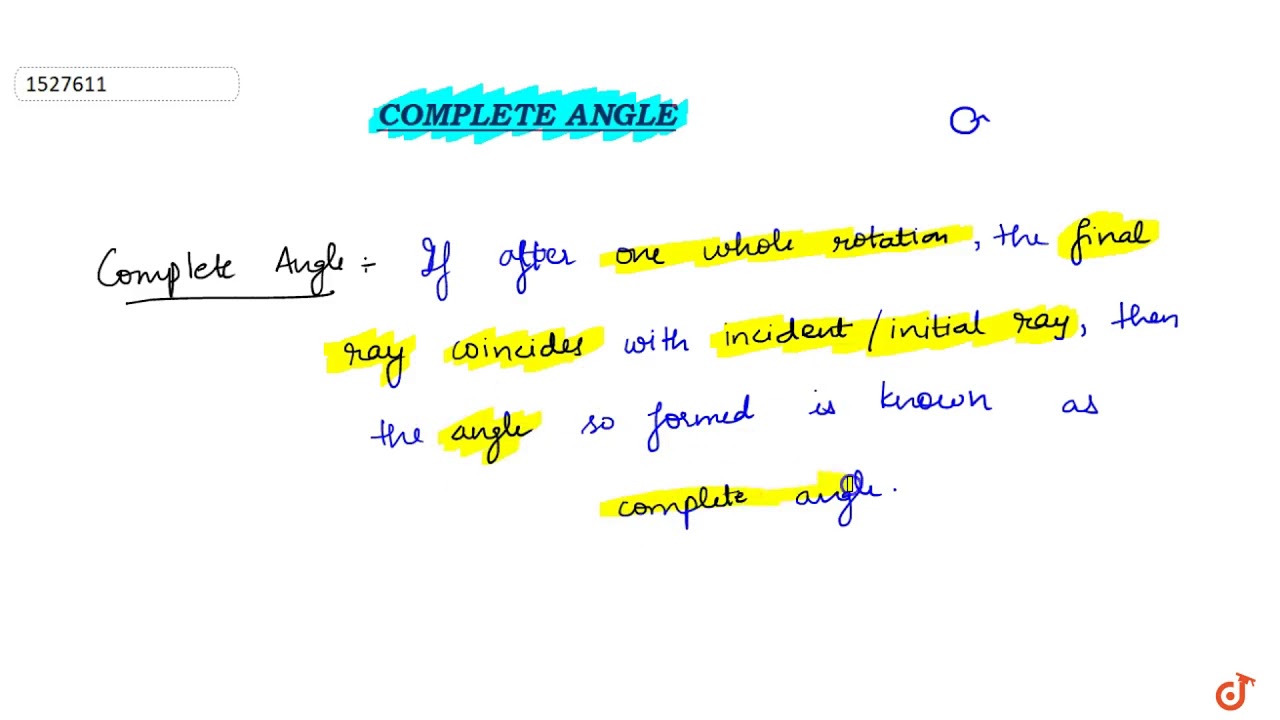 1527611
COMPLETE ANGLE
Complete Angle ÷ If after one whole rotation, the final
ray coincides with incident / initial ray, then
the angle so formed is known as
complete angle.